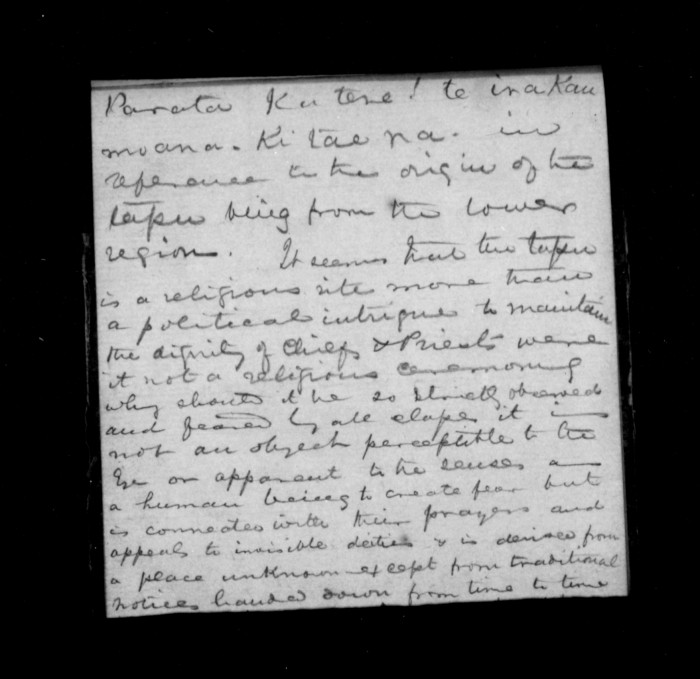 Parata Ku tere! te ira Kau
moana. Ki tae na. in
reference to the origin of the
tapu being from the lower
region. It seems that the tapu
is a religious rite more than
a political intrigue to maintain
the dignity of Chiefs & Priests were
it not a religious ceremony
why should it be so strictly observed
and feared by all classes it is
not an object perceptible to the
Eye or apparent to the senses as
a human being to create fear but
is connected with their prayers and
appeals to invisible deities & is derived from
a place unknown except from traditional
notices handed down from time to time